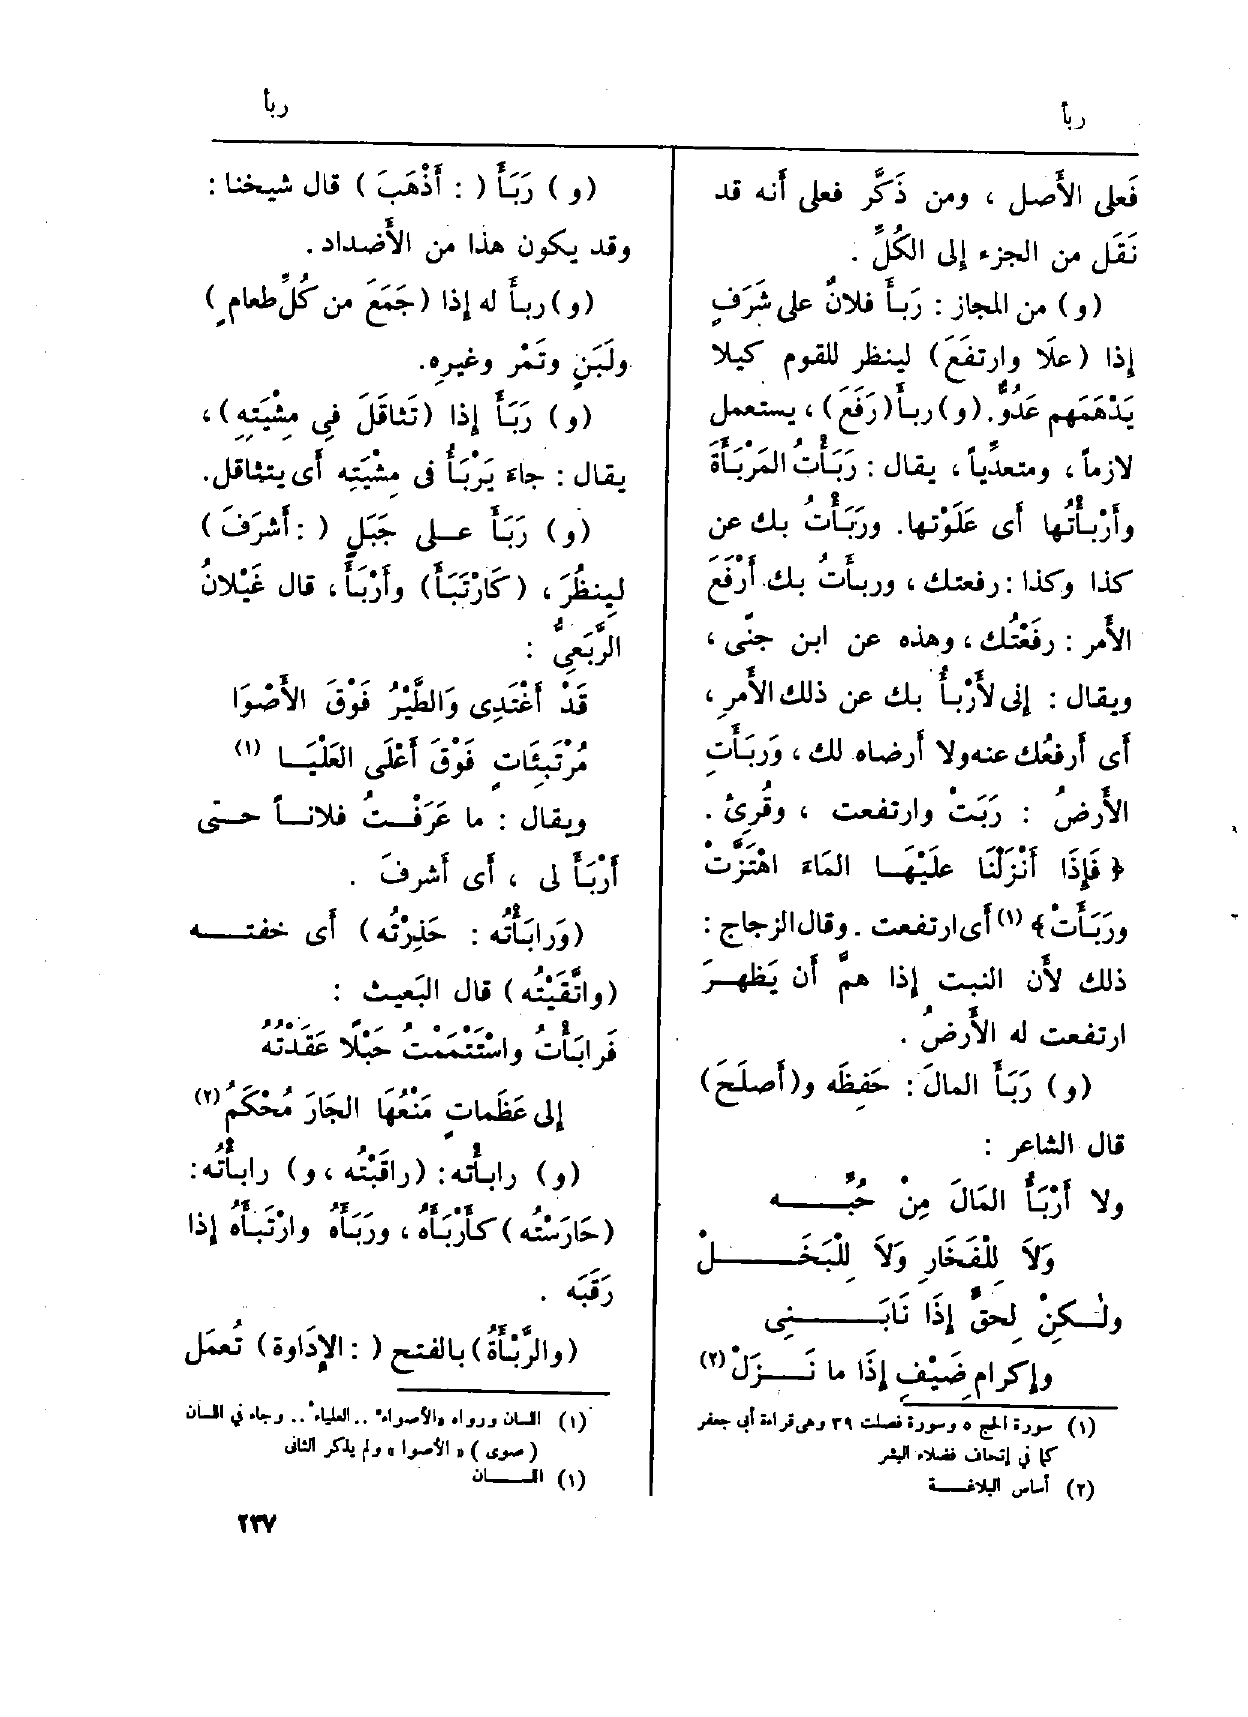 ربأ
ربأ
فَعلى الأَصل ، ومن ذَكَّر فعلى أَنه قد
نَقَل من الجزء إلى الكُلِّ .
(و) من المجاز : رَبَأَ فلانٌ على شَرَفٍ
إذا (علَا وارتفَعَ) لينظر للقوم كيلا
يَدْهَمَهم عَدُوٌّ. (و) ربأَ (رَفَع) ، يستعمل
لازماً ، ومتعدِّياً ، يقال : رَبَأْتُ المَرْبَأَةَ
وأَرْبَأْتُها أى عَلَوْتها. ورَبَأْتُ بك عن
كذا وكذا : رفعتك ، وربأْتُ بك أَرْفَعَ
الأَمر : رفَعْتُك ، وهذه عن ابن جنّى ،
ويقال : إنى لأَرْبأُ بك عن ذلك الأَمرِ ،
أى أَرفعُك عنه ولا أرضاه لك ، وَربَأَتِ
الأَرضُ : رَبَتْ وارتفعت ، وقُرِئَ .
﴿ فَإِذَا أَنْزَلْنَا عَلَيْهَـا المَاءَ اهْتَزَّتْ
ورَبَأَتْ ﴾ (١) أى ارتفعت . وقال الزجاج :
ذلك لأَن النبت إذا همَّ أَن يَظهـرَ
ارتفعت له الأَرضُ .
(و) رَبَأَ المالَ : حَفِظَه و(أَصلَحَ)
قال الشاعر :
ولا أَرْبَأُ المَالَ مِنْ حُبِّـــه
وَلَا لِلْفَخَارِ وَلَا لِلْبَخَــــلْ
ولـكِنْ لِحقٍّ إِذَا نَابَــــنِى
وإكرامِ ضَيْفٍ إِذَا ما نَـــزَلْ (٢)
(١) سورة الحج ٥ وسورة فصلت ٣٩ وهى قراءة أبى جعفر
كما في إتحاف فضلاء البشر
(٢) أساس البلاغـــة
(و) رَبَأَ ( : أَذْهَبَ ) قال شيخنا :
وقد يكون هذا من الأَضداد .
(و) ربأَ له إذا (جَمَعَ من كُلِّ طعامٍ )
ولَبَنٍ وتَمْر وغيرِه.
(و) رَبَأَ إذا (تَثاقَلَ فِى مِشْيَتِهِ) ،
يقال : جاءَ يَرْبَأُ فى مِشْيَتِه أى يتثاقل.
(و) رَبَأَ عـلى جَبَلٍ ( : أَشرَفَ )
لِينظُرَ ، (كَارْتَبَأَ) وأَرْبَأَ ، قال غَيْلانُ
الرَّبَعِىُّ :
قَدْ أَغْتَدِى وَالطَّيْرُ فَوْقَ الأَصْوَا
مُرْتَبِئَاتٍ فَوْقَ أَعْلَى العَلْيَــا (١)
ويقال : ما عَرَفْـتُ فلانــاً حـتى
أَرْبَأَ لى ، أى أَشرفَ .
(وَرابَأْتُه : حَذِرْتُه) أى خفتـــه
(واتَّقَيْتُه) قال البَعيث :
فَرابَأْتُ واسْتَتْمَمْتُ حَبْلًا عَقَدْتُهُ
إلى عَظَمَاتٍ مَنْعُهَا الجَارَ مُحْكَمُ (٢)
(و) رابأْته : (راقَبْتُه ، و) رابـأْتُه :
(حَارَسْتُه) كأَرْبَأَهُ ، ورَبَأَهُ وارْتَبأَهُ إذا
رَقَبَه .
(والرَّبْأَةُ) بالفتح ( : الإِدَاوة) تُعمَل
(١) اللسان ورواه «الأصواء» .. العلياء» .. وجاء في اللسان
(صوى) « الأصوا » ولم يذكر الثانى
(١) اللــــان
٢٣٧